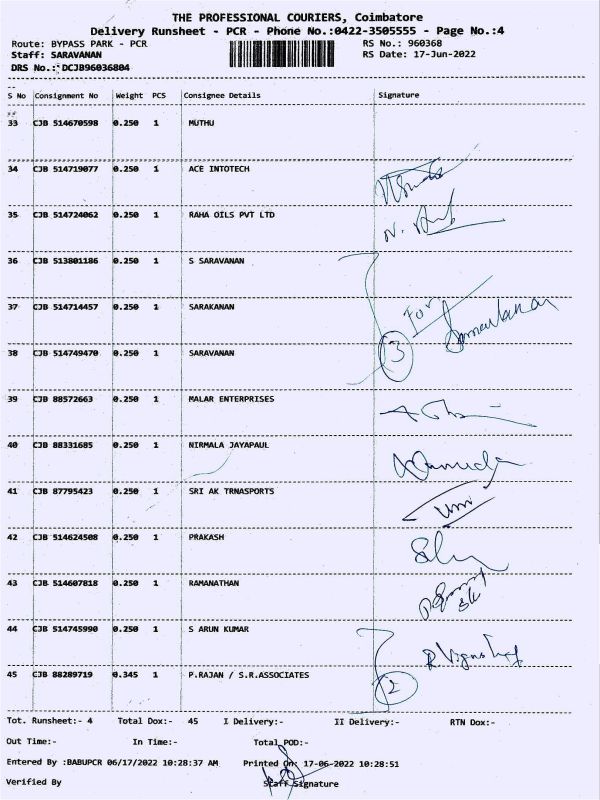 THE PROFESSIONAL COURIERS, Coimbatore
Delivery Runsheet - PCR - Phone No.:0422-3505555 - Page No.:4
Route: BYPASS PARK - PCR RS No.: 960368
Staff: SARAVANAN RS Date: 17-Jun-2022
DRS No.: DCJB96036804
S No Consignment No Weight PCS Consignee Details Signature
33 CJB 514670598 0.250 1 MUTHU
34 CJB 514719077 0.250 1 ACE INTOTECH
35 CJB 514724062 0.250 1 RAHA OILS PVT LTD
36 CJB 513801186 0.250 1 S SARAVANAN
37 CJB 514714457 0.250 1 SARAKANAN For
38 CJB 514749470 0.250 1 SARAVANAN 3
39 CJB 88572663 0.250 1 MALAR ENTERPRISES
40 CJB 88331685 0.250 1 NIRMALA JAYAPAUL
41 CJB 87795423 0.250 1 SRI AK TRNASPORTS
42 CJB 514624508 0.250 1 PRAKASH
43 CJB 514607818 0.250 1 RAMANATHAN
44 CJB 514745990 0.250 1 S ARUN KUMAR
45 CJB 88289719 0.345 1 P.RAJAN / S.R.ASSOCIATES 2
Tot. Runsheet:- 4 Total Dox:- 45 I Delivery:- II Delivery:- RTN Dox:-
Out Time:- In Time:- Total POD:-
Entered By :BABUPCR 06/17/2022 10:28:37 AM Printed On: 17-06-2022 10:28:51
Verified By Staff Signature